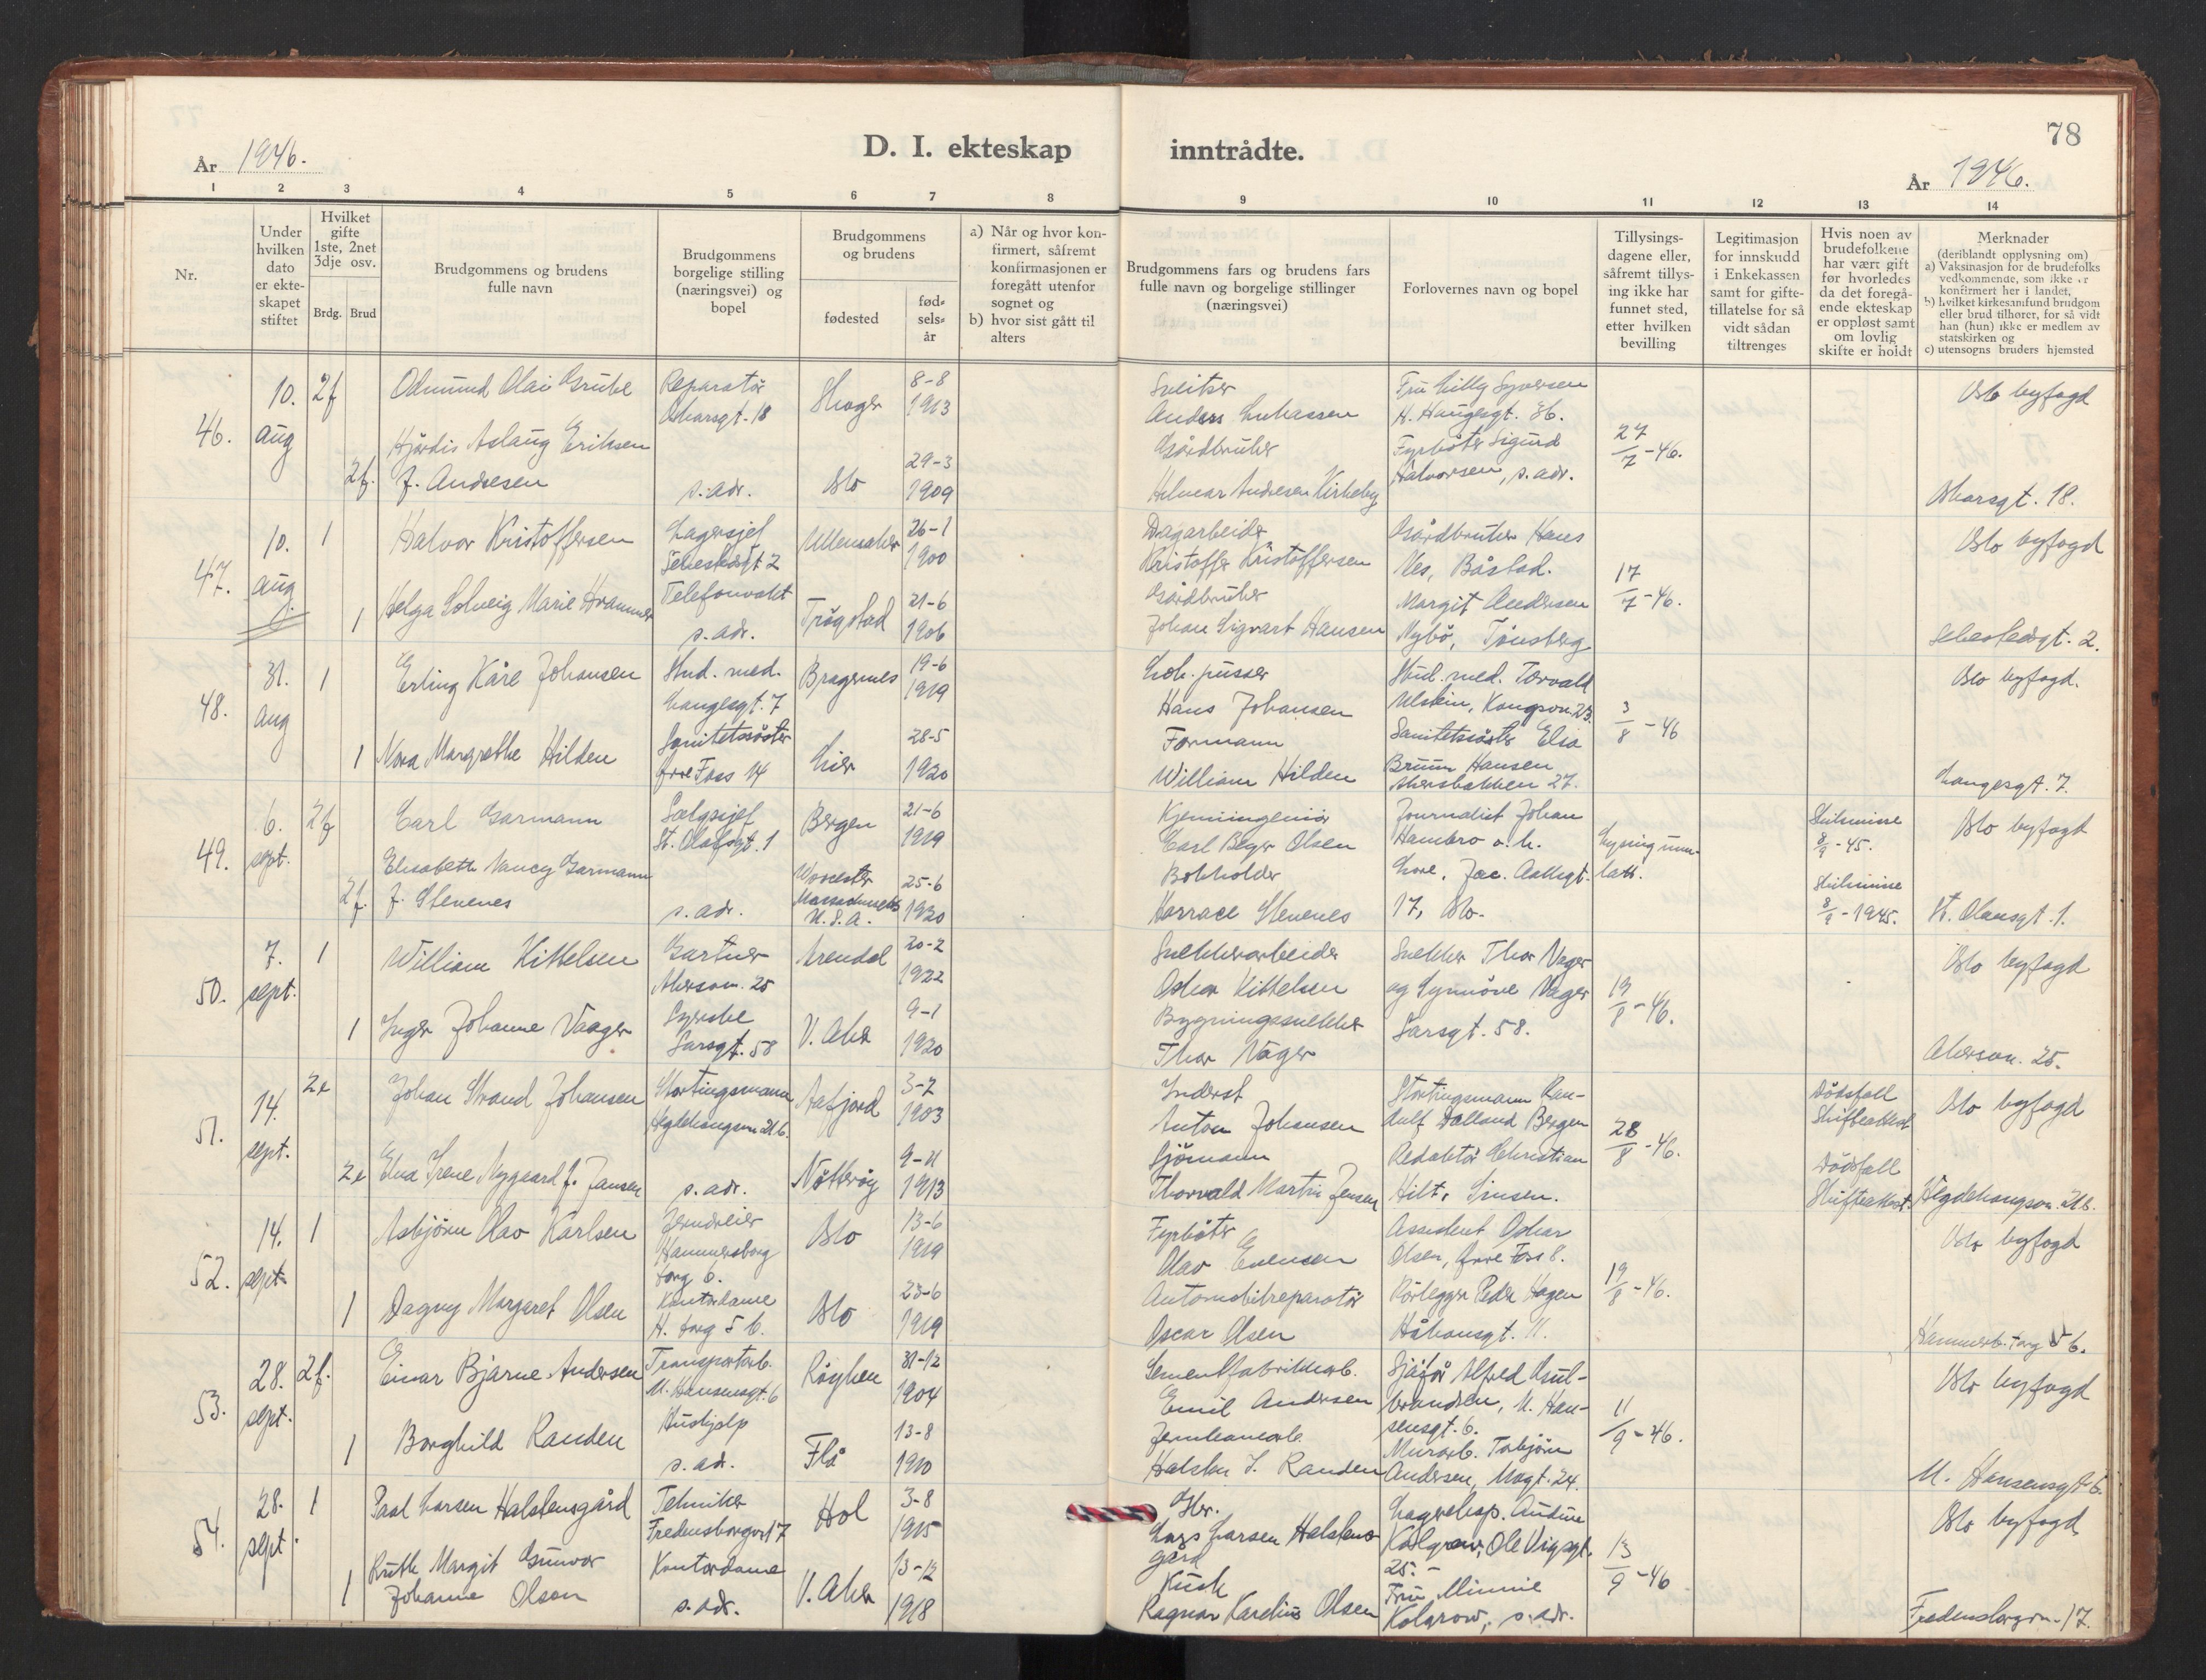 78
År 1946.
D. I. ekteskap inntrådte.
År 1946.
1 2 3 4 5 6 7 8 9 10 11 12 13 14
Nr.
Under
hvilken
dato
er ekte-
skapet
stiftet
Hvilket
gifte
1ste, 2net
3dje osv.
Brdg. Brud
Brudgommens og brudens
fulle navn
Brudgommens
borgelige stilling
(næringsvei) og
bopel
Brudgommens
og brudens
fødested
fød-
sels-
år
a) Når og hvor kon-
firmert, såfremt
konfirmasjonen er
foregått utenfor
sognet og
b) hvor sist gått til
alters
Brudgommens fars og brudens fars
fulle navn og borgelige stillinger
(næringsvei)
Forlovernes navn og bopel
Tillysings-
dagene eller,
såfremt tillys-
ing ikke har
funnet sted,
etter hvilken
bevilling
Legitimasjon
for innskudd
i Enkekassen
samt for gifte-
tillatelse for så
vidt sådan
tiltrenges
Hvis noen av
brudefolkene
har vært gift
før hvorledes
da det foregå-
ende ekteskap
er oppløst samt
om lovlig
skifte er holdt
Merknader
(deriblandt opplysning om)
a) Vaksinasjon for de brudefolks
vedkommende, som ikke er
konfirmert her i landet,
b) hvilket kirkesamfund brudgom
eller brud tilhører, for så vidt
han (hun) ikke er medlem av
statskirken og
c) utensogns bruders hjemsted
46.
10.
aug
2f
2f.
Odmund Olai Grube
Hjørdis Aslaug Eriksen
f. Andresen
Reparatør
Oskarsgt. 18
s. adr.
Skoger
Oslo
8-8
1913
29-3
1909
Sveitser
Anders Lukassen
Gårdbruker
Hilmar Andresen Kirkeby
Fru Lilly Syversen
H. Haugesgt. 36.
Fyrbøter Sigurd
Halvorsen, s. adr.
27/7-46.
Oslo byfogd
Oskarsgt. 18.
47.
10.
aug.
1
1
Halvor Kristoffersen
Helga Solveig Marie
Lagersjef
Sehestedsgt 2
Telefonvakt
s. adr.
Ullensaker
Trøgstad
26-1
1900
21-6
1906
Dagarbeider
Kristoffer Kristoffersen
Gårdbruker
Johan Sigvart Hansen
Gårdbruker Hans
Nes, Båstad.
Margit Andersen
Nybø, Tønsberg
17/7-46.
Oslo byfogd
Sehestedsgt. 2.
48.
31.
aug
1
1
Erling Kåre Johansen
Nora Margrethe Hilden
Stud. med.
Langesgt. 7
Sanitetssøster
Øvre Foss 14
Bragernes
Lier
19-6
1919
28-5
1920
Lok. pusser
Hans Johansen
Formann
William Hilden
Stud. med. Torvald
Ulstein, Kongsv. 23.
Sanitetssøster Elsa
Bruun Hansen
Akersbakken 27.
3/8-46
Oslo byfogd.
Langesgt. 7.
49.
6.
sept.
2f
2f.
Carl Garmann
Elisabeth Nancy Garmann
f. Stevenes
Salgssjef
St. Olafsgt. 1
s. adr.
Bergen
Worcester
Massachusetts
U. S. A.
21-6
1919
25-6
1920
Kjemiingeniør
Carl Beyer Olsen
Bokholder
Horrace Stevenes
Journalist Johan
Hambro o. h.
Lore, Jac. Aallsgt.
17, Oslo.
Lysing unn-
latt.
Skilsmisse
8/9-45.
Skilsmisse
8/9-1945.
Oslo byfogd
St. Olavsgt. 1.
50.
7.
sept.
1
1
William Kittelsen
Inger Johanne Vaager
Gartner
Akersv. 25
Syerske
Sarsgt. 58
Arendal
V. Aker
20-2
1922
9-1
1920
Snekkerarbeider
Oskar Kittelsen
Bygningssnekker
Thor Våger
Snekker Thor Vager
og Synnøve Våger
Sarsgt. 58.
19/8-46.
Oslo byfogd
Akersvn. 25.
51.
14.
sept.
2e
2e
Johan Strand Johansen
Elna Irene Nygaard f. Jansen
Stortingsmann
Hegdehaugsvn 21 b.
s. adr.
Aafjord
Nøtterøy
3-2
1903
9-11
1913
Inderst
Anton Johansen
Sjømann
Thorvald Martin Jensen
Stortingsmann Ran-
dulf Dalland Bergen
Redaktør Christian
Hilt, Sinsen.
28/8-46.
Dødsfall
Skifteattest
Dødsfall
Skifteattest.
Oslo byfogd
Hegdehaugsvn. 21 b.
52.
14.
sept.
1
1
Asbjørn Olav Karlsen
Dagny Margaret Olsen
Jerndreier
Hammersborg
torg 6.
Kontordame
H. torg 5 b.
Oslo
Oslo
13-6
1919
23-6
1919
Fyrbøter
Olav Evensen
Automobilreparatør
Oscar Olsen
Assistent Oskar
Olsen, Øvre Foss 8.
Rørlegger Peder Hagen
Håkonsgt. 11.
19/8-46.
Oslo byfogd
Hammerb. torg 5 b.
53.
28.
sept.
2f.
1
Einar Bjarne Andersen
Borghild Randen
Transportarb.
M. Hansensgt. 6
Hushjelp
s. ad.
Røyken
Flå
31-12
1904
13-8
1910
Sementfabrikkarb.
Emil Andersen
Jernbanearb.
Halsten T. Randen
Sjåfør Alfred Gul-
brandsen, M. Han-
sensgt. 6.
Murarb. Torbjørn
Andersen, Mogt. 24.
11/9-46.
Oslo byfogd
M. Hansensgt 6.
54.
28.
sept.
1
1
Paal Larsen Halstensgård
Ruth Margit Gunvor
Johanne Olsen
Tekniker
Fredensborgv 17
Kontordame
s. adr.
Hol
V. Aker
3-8
1915
13-12
1918
Gbr.
Lars Larsen Halstens-
gård
Kusk
Ragnar Karelius Olsen
Lagereksp. Audun
Kolgrov, Ole Vigsgt.
25.-
Fru Minnie
Kolgrov, s. adr.
13/9-46
Oslo byfogd
Fredensborgvn. 17.